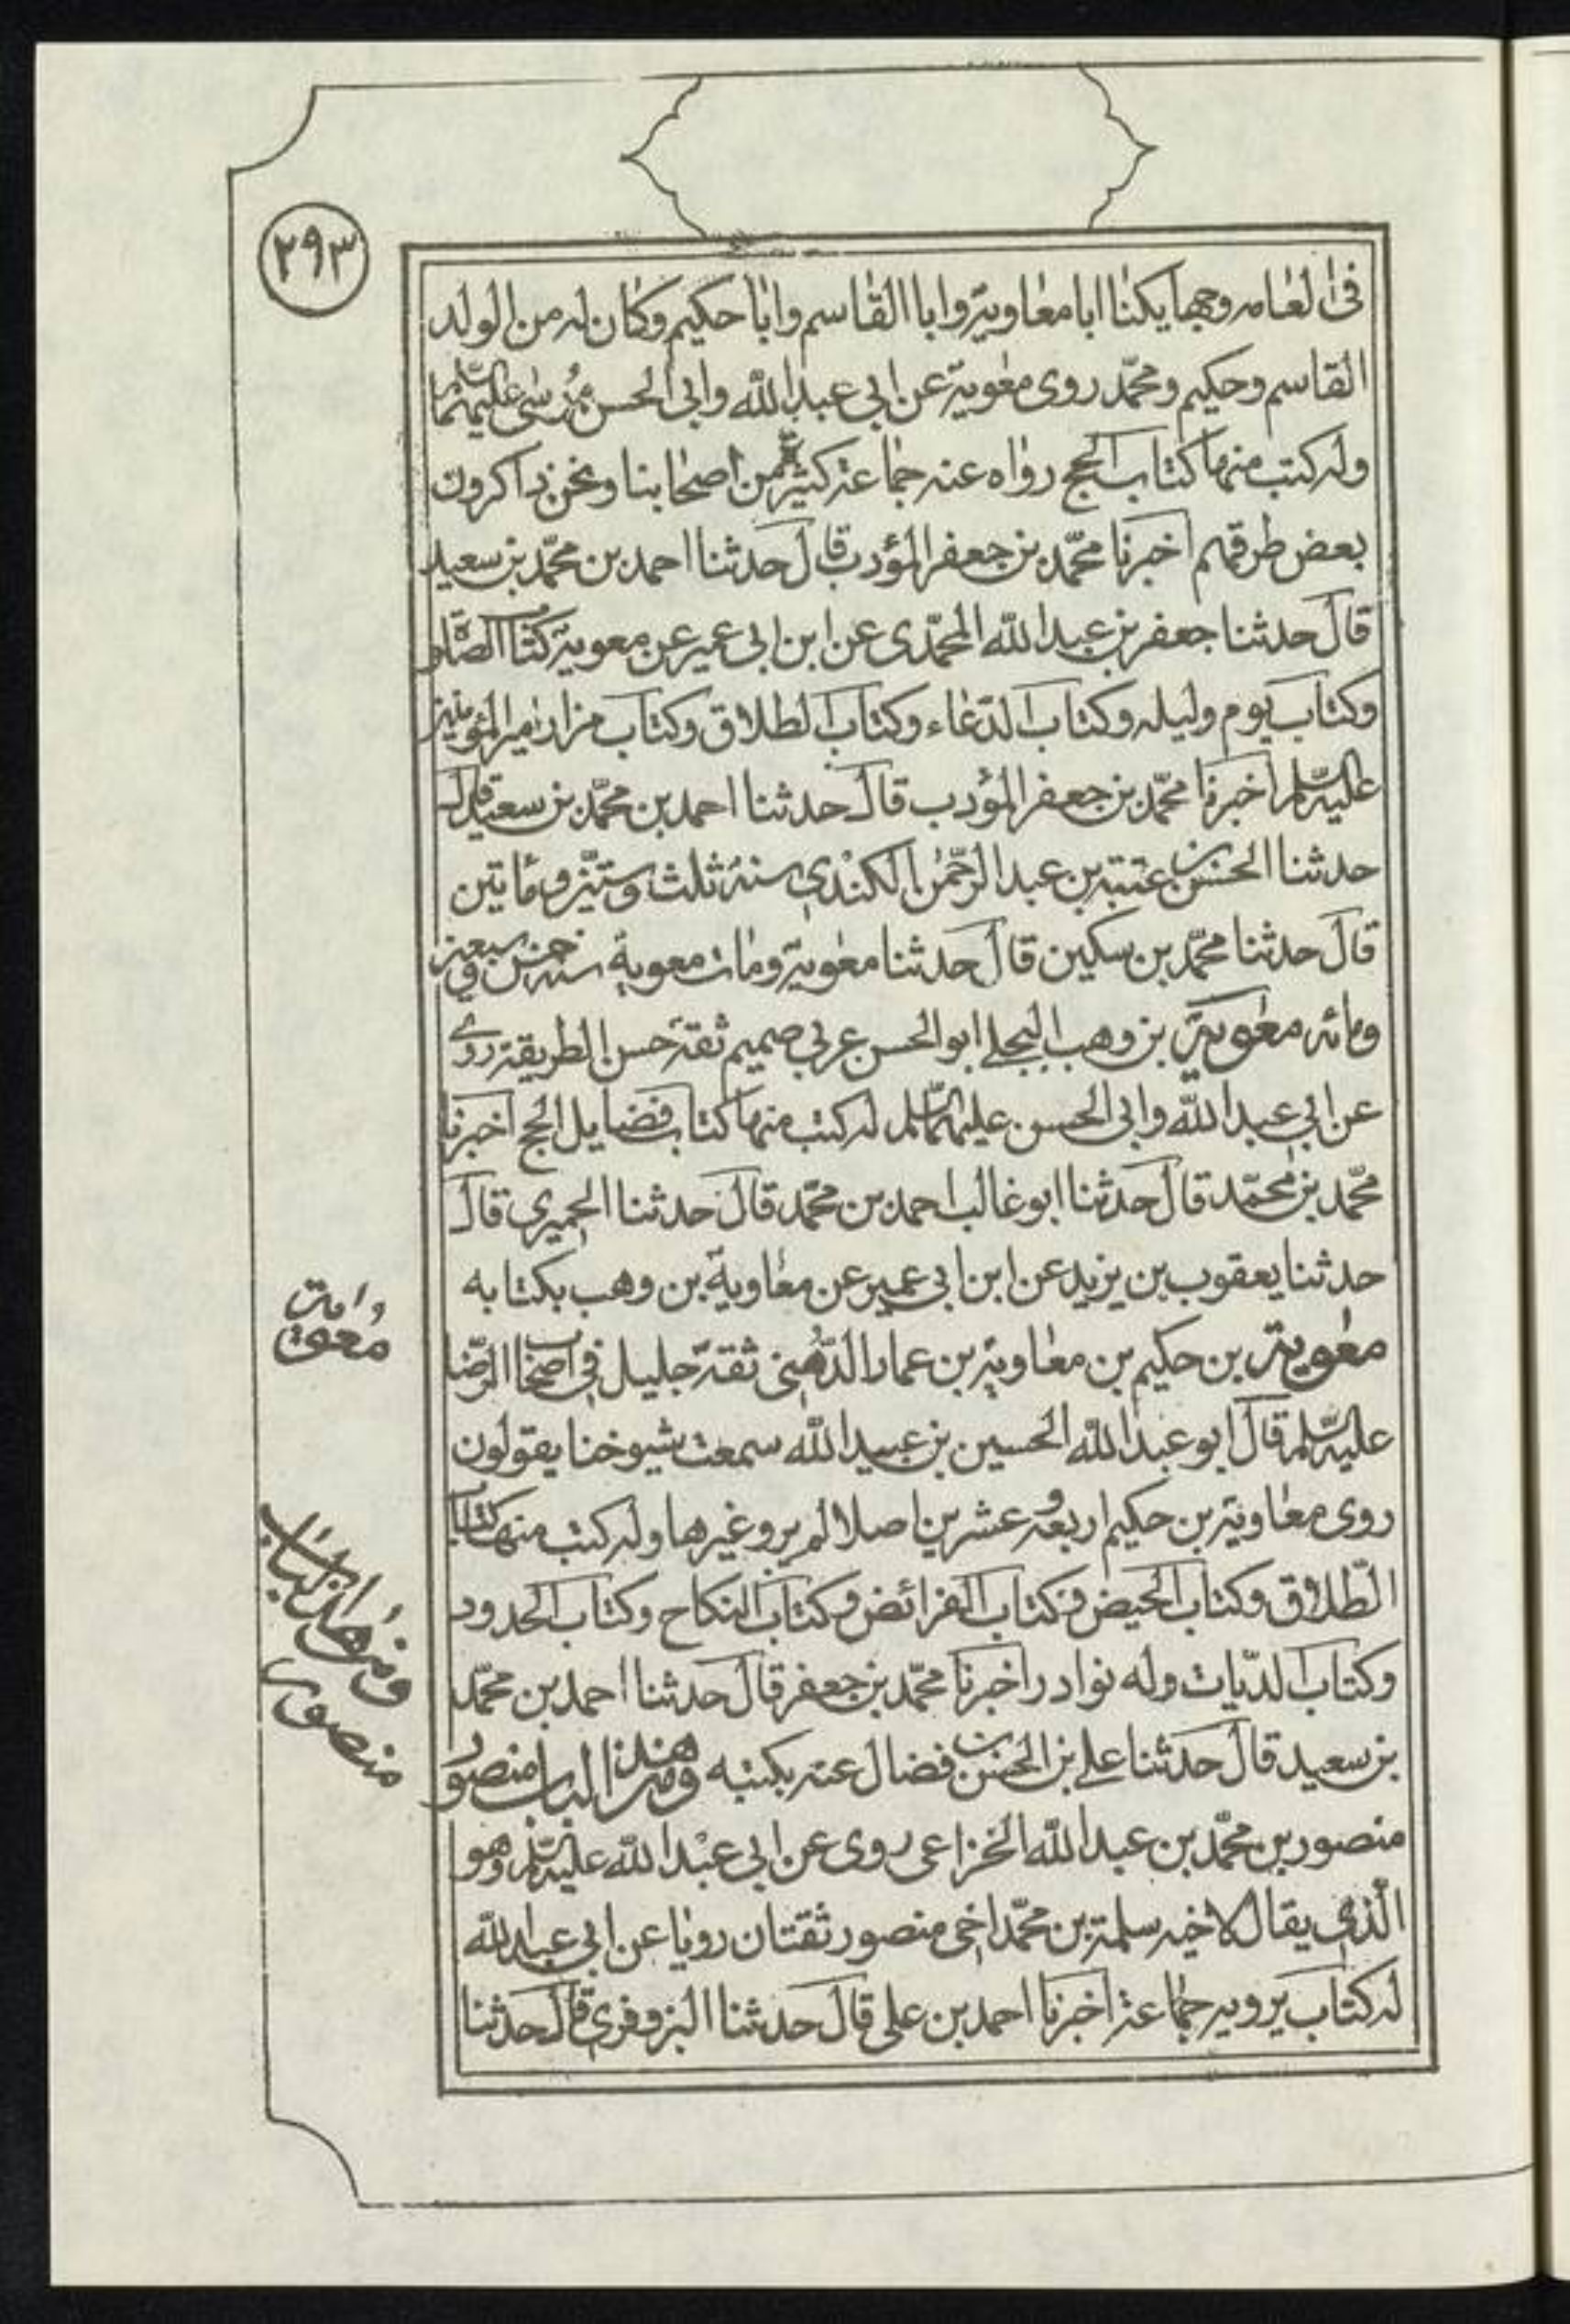 ٢٩٣
فى العامه وجها يكنا ابا معاوية وابا القاسم وابا حكيم وكان له من الولد
القاسم وحكيم ومحمّد روى معوية عن ابي عبد الله وابى الحسن موسى عليهما السّلم
وله كتب منها كتاب الحج رواه عنه جماعة كثيرة من اصحابنا ونحن ذاكرون
بعض طرقهم اخبرنا محمّد بن جعفر المؤدب قال حدثنا احمد بن محمّد بن سعيد
قال حدثنا جعفر بن عبد الله المحمّدى عن ابن ابى عمير عن معوية كتاب الصّلوة
وكتاب يوم وليله وكتاب الدّعاء وكتاب الطلاق وكتاب مزار امير المؤمنين
عليه السّلم اخبرنا محمّد بن جعفر المؤدب قال حدثنا احمد بن محمّد بن سعيد قال
حدثنا الحسن بن عتبة بن عبد الرّحمٰن الكندي سنة ثلث وستّين ومأتين
قال حدثنا محمّد بن سكين قال حدثنا معوية ومات معوية سنة خمس وسبعين
ومائه معوية بن وهب البجلى ابو الحسن عربي صميم ثقة حسن الطريقة روى
عن ابي عبد الله وابى الحسن عليهما السّلم له كتب منها كتاب فضايل الحج اخبرنا
محمّد بن محمّد قال حدثنا ابو غالب احمد بن محمّد قال حدثنا الحميري قال
حدثنا يعقوب بن يزيد عن ابن ابى عمير عن معاوية بن وهب بكتابه
معوية بن حكيم بن معاوية بن عمار الدّهنى ثقة جليل في اصحاب الرّضا
عليه السّلم قال ابو عبد الله الحسين بن عبيد الله سمعت شيوخنا يقولون
روى معاوية بن حكيم اربعة وعشرين اصلا لم يرو غيرها وله كتب منها كتاب
الطّلاق وكتاب الحيض وكتاب الفرائض وكتاب النكاح وكتاب الحدود
وكتاب الديّات وله نوادر اخبرنا محمّد بن جعفر قال حدثنا احمد بن محمّد
بن سعيد قال حدثنا على بن الحسن بن فضال عنه بكتبه ومن هذا الباب منصور
منصور بن محمّد بن عبد الله الخزاعى روى عن ابي عبد الله عليه السّلم وهو
الّذي يقال لاخيه سلمة بن محمّد اخى منصور ثقتان رويا عن ابي عبد الله
له كتاب يرويه جماعة اخبرنا احمد بن على قال حدثنا البزوفري قال حدثنا
معوية
ومن هذا الباب
منصور